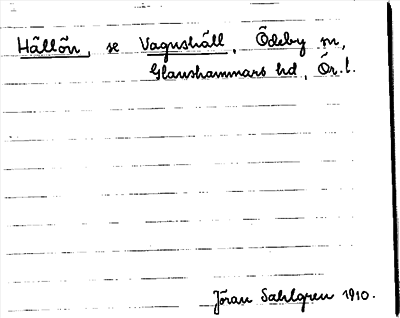 Hällön, se Vagnshäll, Ödeby sn,
Glanshammars hd, Ör. l.
Jöran Sahlgren 1910.